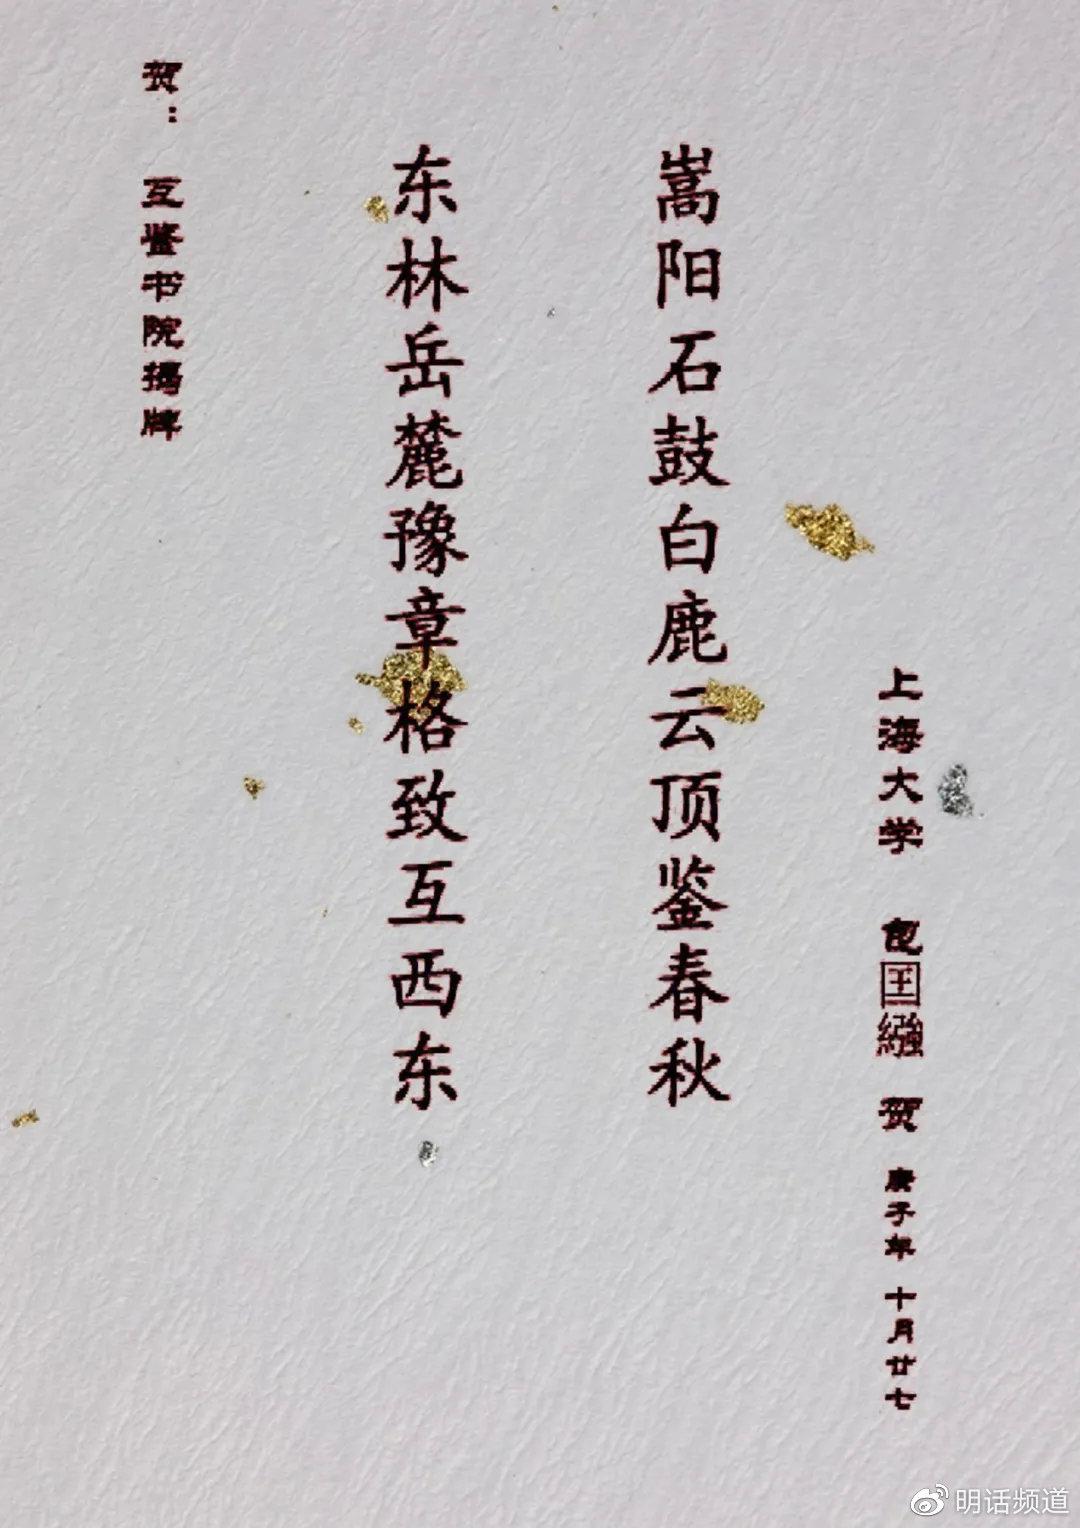 贺： 互鉴书院揭牌
东林岳麓豫章格致互西东
嵩阳石鼓白鹿云顶鉴春秋
上海大学 包囯繦 贺 庚子年 十月廿七
明话频道